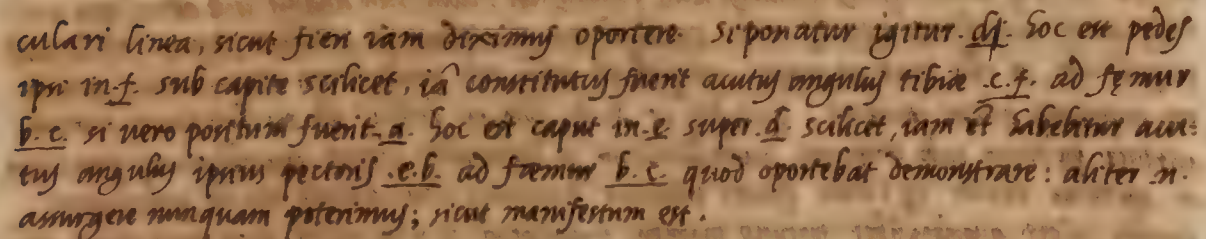 culari linea, sicut fieri iam diximus oportere. Si ponatur igitur .d. hoc est pedes
ipsi in .f. sub capite scilicet, iã constitutus fuerit acutus angulus tibiæ .c.f. ad fęmur
b.c. si vero positum fuerit .a. hoc est caput in .e. super .d. scilicet, iam et̃ habebitur acu-
tus angulus ipsius pectoris .e.b. ad fæmur b.c. quod oportebat demonstrare: aliter .n.
assurgere nunquam poterimus; sicut manifestum est.